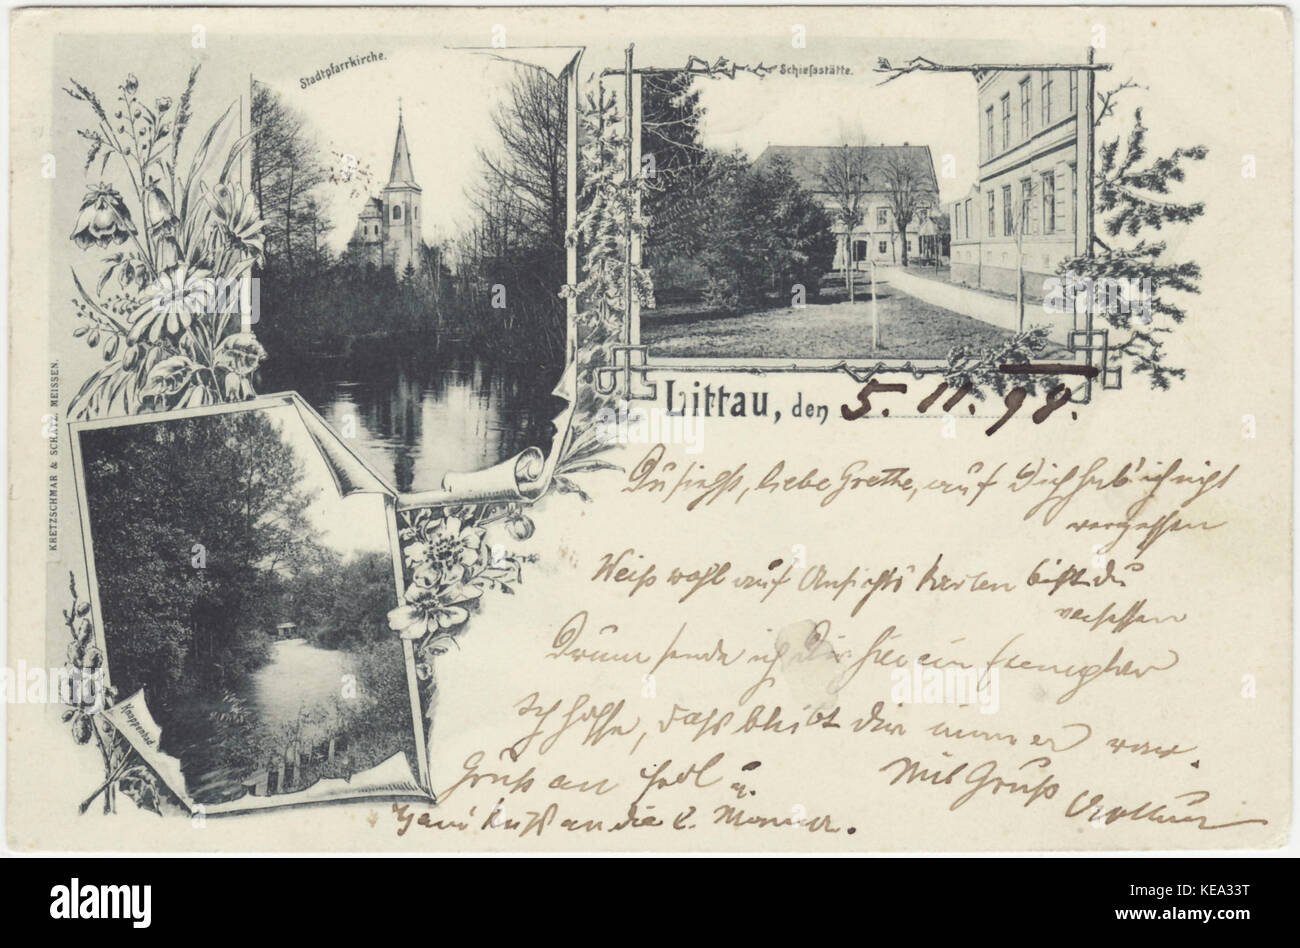 Stadtpfarrkirche.
Schießstätte.
KRETZSCHMAR & SCHATZ, MEISSEN.
Littau, den 5. 11. 98.
Du siehst, liebe Grethe, auf Dich hab' ich nicht
vergessen
Weiß wohl auf Ansichts Karten bist du
versessen
Drum sende ich Dir hier ein Exemplar
Ich hoffe, daß bleibt dir immer
Mit Gruß
Gruß an u.
Kuß an die l. Mama.
alamy
Image ID: KEA33T
www.alamy.com